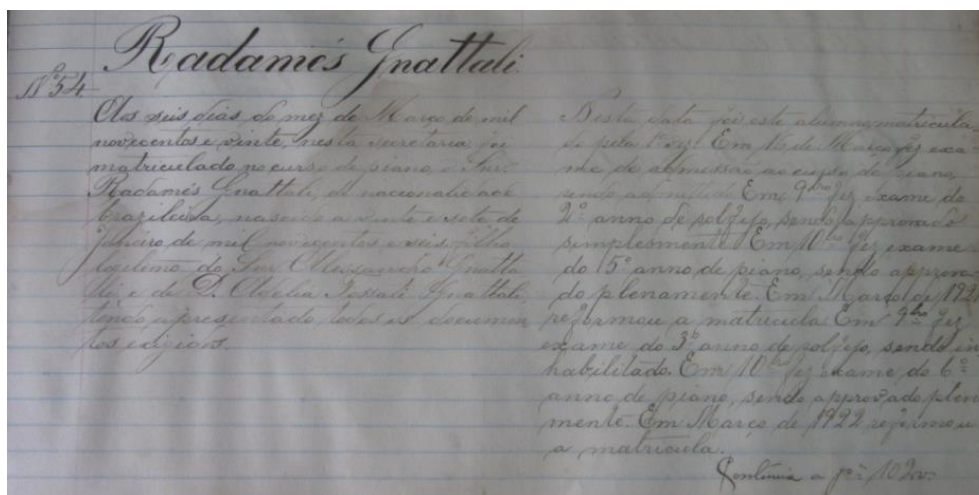 Radamés Gnattali
Nº 54
Aos seis dias do mez de Março de mil
novecentos e vinte, nesta secretaria foi
matriculado no curso de piano, o Snr.
Radamés Gnattali, de nacionalidade
brazileira, nascido a vinte e sete de
janeiro de mil novecentos e seis, filho
legitimo do Snr. Alessandro Gnatta
li e de D. Adelia Fossati Gnattali,
tendo apresentado todos os documen
tos exigidos.
Nesta data foi este alumno matricula
do pela 1ª vez. Em 16 de Março fez exa-
me de admissão ao curso de piano,
sendo admittido. Em 9bro fez exame do
2º anno de solfejo, sendo approvado
simplesmente. Em 10bro fez exame
do 5º anno de piano, sendo approva
do plenamente. Em Março de 192
reformou a matricula. Em 9bro fez
exame do 3º anno de solfejo, sendo in
habilitado. Em 10bro fez exame do 6º
anno de piano, sendo approvado plen
mente. Em Março de 1922 reformou
a matricula.
Continúa a pg. 102v.